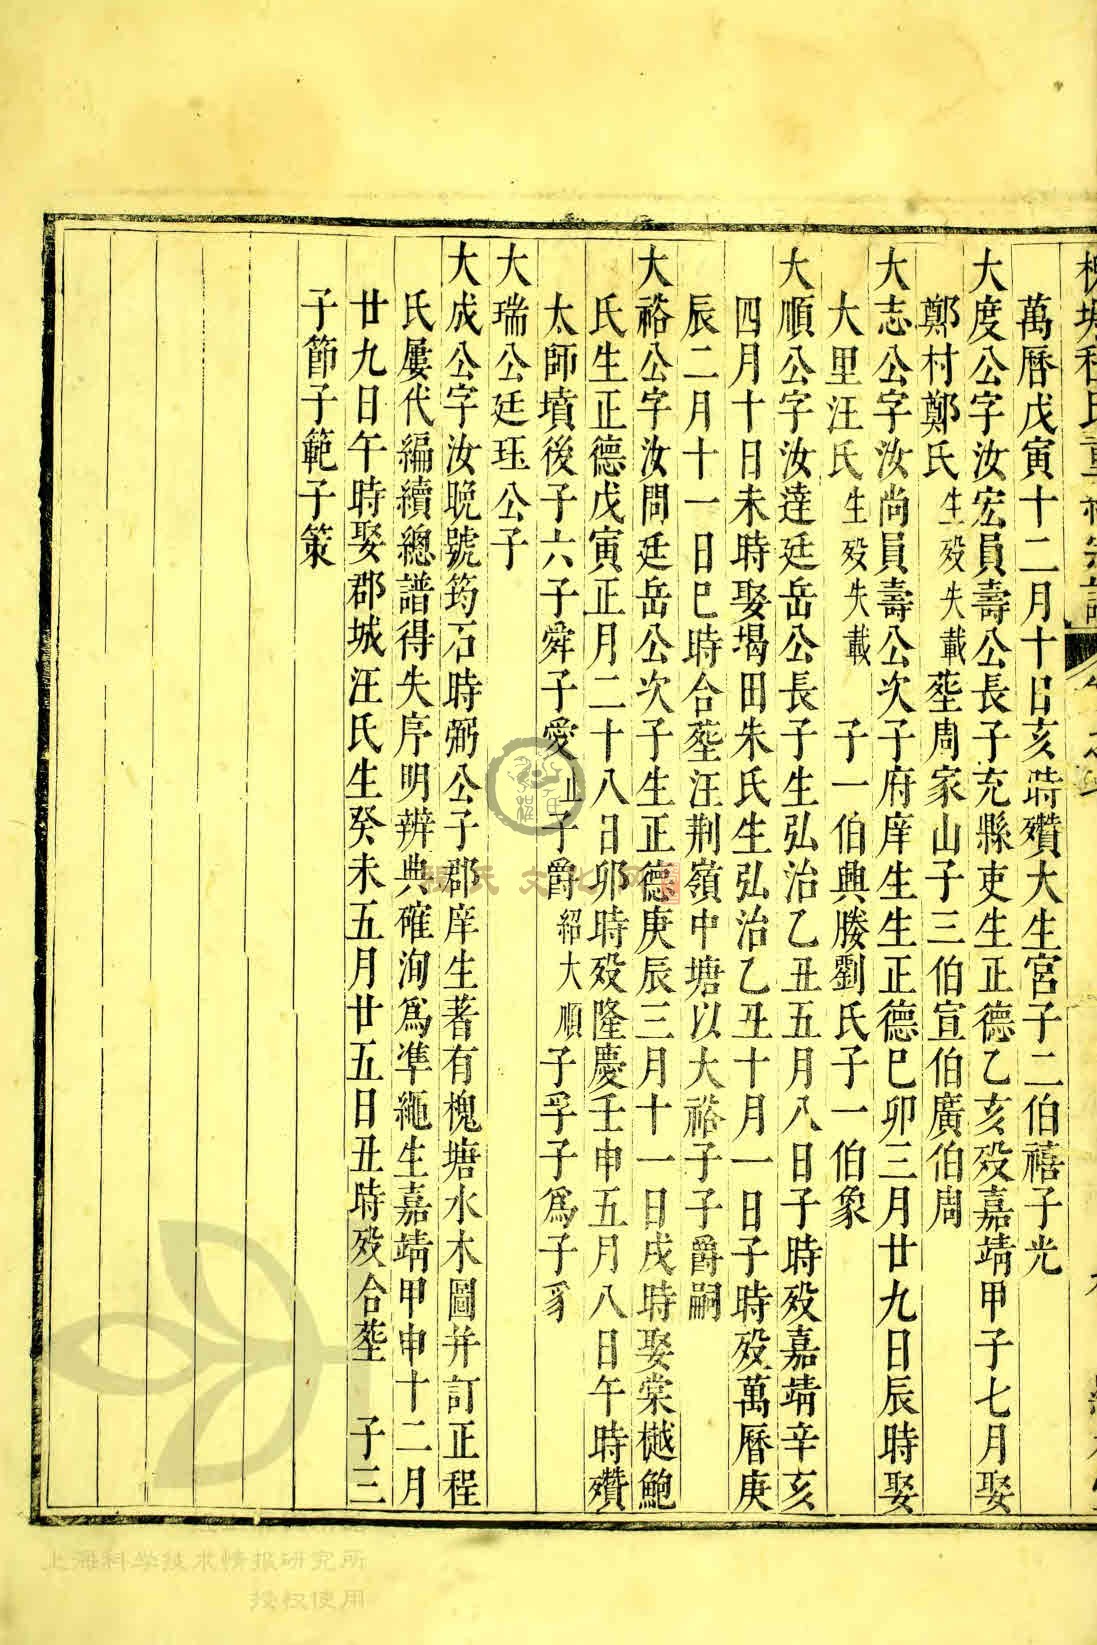 槐塘程氏重
萬曆戊寅十二月十日亥時殯大生宮子二伯禧子光
大度公字汝宏員壽公長子充縣吏生正德乙亥歿嘉靖甲子七月娶
鄭村鄭氏生歿失載塟周家山子三伯宣伯廣伯周
大志公字汝尚員壽公次子府庠生生正德巳卯三月廿九日辰時娶
大里汪氏生歿失載 子一伯興媵劉氏子一伯象
大順公字汝達廷岳公長子生弘治乙丑五月八日子時歿嘉靖辛亥
四月十日未時娶堨田朱氏生弘治乙丑十月一日子時歿萬曆庚
辰二月十一日巳時合塟汪荆嶺中塘以大裕子子爵嗣
大裕公字汝問廷岳公次子生正德庚辰三月十一日戌時娶棠樾鮑
氏生正德戊寅正月二十八日卯時歿隆慶壬申五月八日午時殯
太師墳後子六子舜子愛止子爵紹大順子孚子為子豸
大瑞公廷珏公子
大成公字汝晚號筠石時弼公子郡庠生著有槐塘水木圖并訂正程
氏屢代編續總譜得失序明辨典確洵爲凖繩生嘉靖甲申十二月
廿九日午時娶郡城汪氏生癸未五月廿五日丑時歿合塟 子三
子節子範子策
上海科学技术情报研究所
授权使用